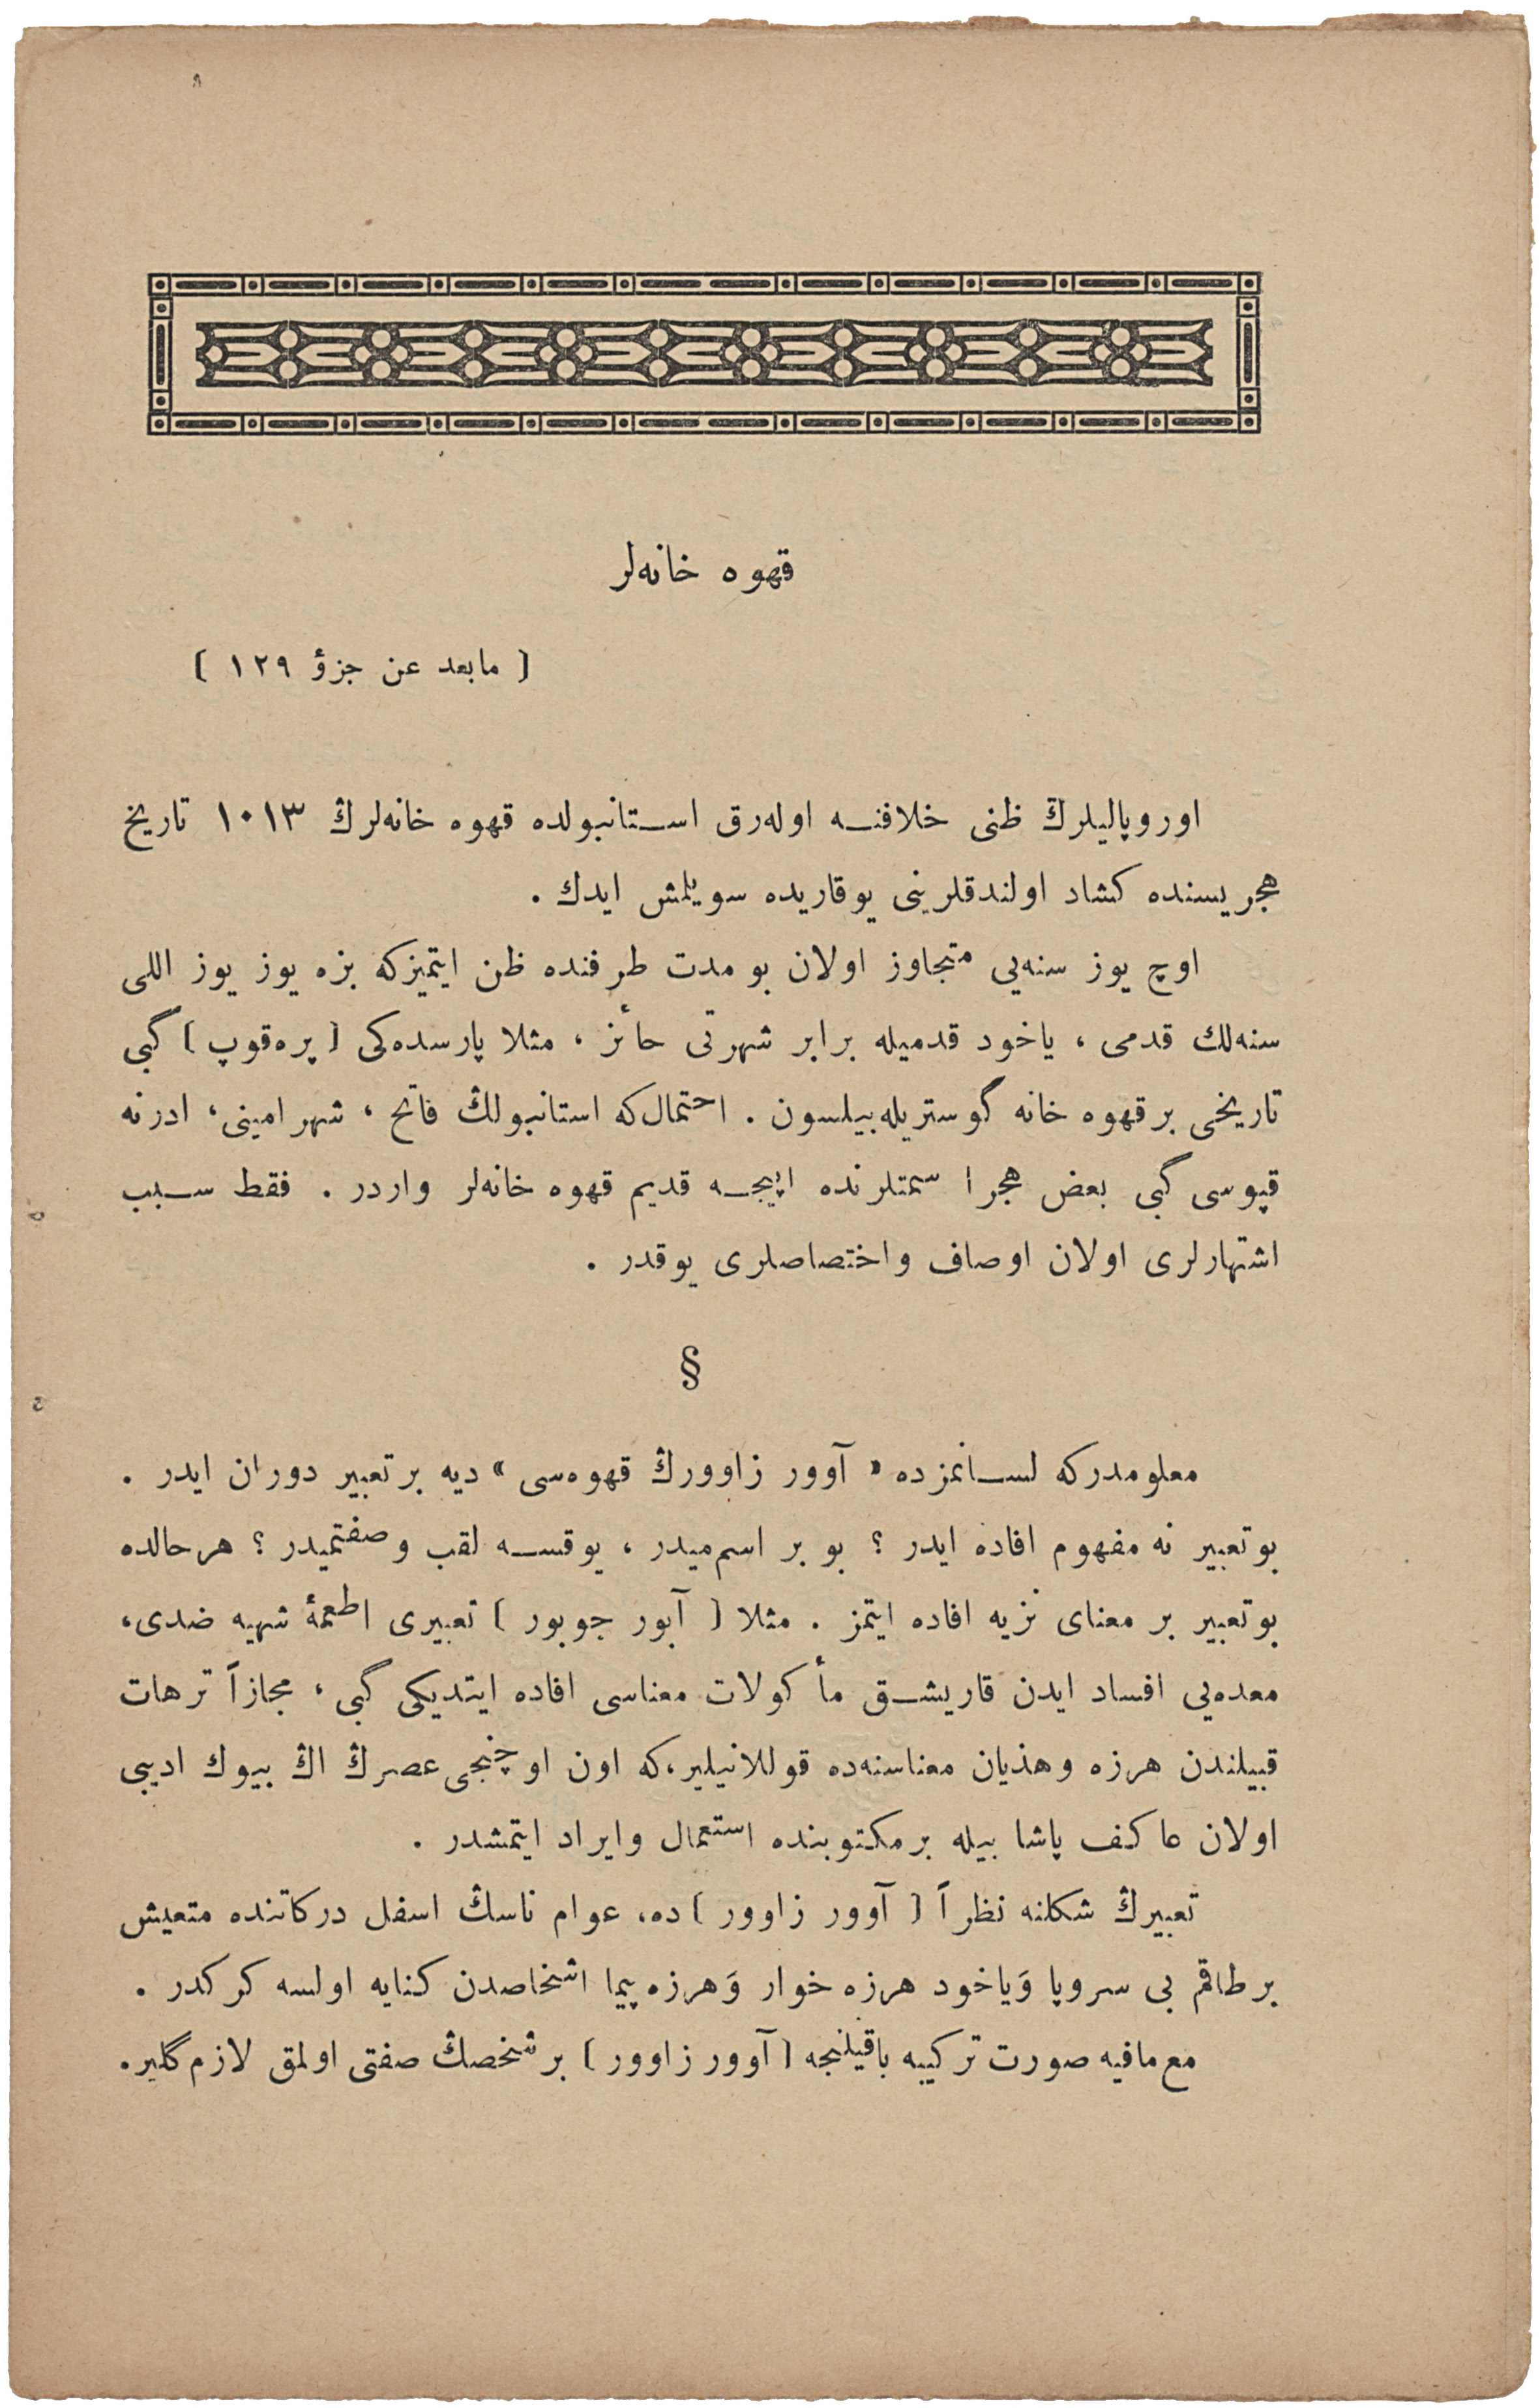 قهوه خانه‌لر
[ مابعد عن جزؤ ١٢٩ ]
اوروپالیلرڭ ظنی خلافنه اوله‌رق استانبولده قهوه خانه‌لرڭ ١٠١٣ تاریخ
هجریسنده کشاد اولندقلرینی یوقاریده سویلمش ایدك .
اوچ یوز سنه‌یی متجاوز اولان بو مدت طرفنده ظن ایتمیزکه بزه یوز یوز اللی
سنه‌لك قدمی ، یاخود قدمیله برابر شهرتی حائز ، مثلا پارسده‌کی [ پره‌قوپ ] گبی
تاریخی برقهوه خانه گوستریله‌بیلسون . احتمال‌که استانبولڭ فاتح ، شهرامینی، ادرنه
قپوسی گبی بعض هجرا سمتلرنده اپیجه قدیم قهوه خانه‌لر واردر . فقط سبب
اشتهارلری اولان اوصاف واختصاصلری یوقدر .
§
معلومدرکه لسانمزده « آوور زاوورڭ قهوه‌سی » دیه برتعبیر دوران ایدر .
بوتعبیر نه مفهوم افاده ایدر ؟ بو بر اسم‌میدر ، یوقسه لقب وصفتمیدر ؟ هرحالده
بوتعبیر بر معنای نزیه افاده ایتمز . مثلا [ آبور جوبور ] تعبیری اطعمهٔ شهیه ضدی،
معده‌یی افساد ایدن قاریشق مأكولات معناسی افاده ایتدیکی گبی ، مجازاً ترهات
قبیلندن هرزه وهذیان معناسنه‌ده قوللانیلیر،که اون اوچنجی عصرڭ اڭ بیوك ادیبی
اولان عاکف پاشا بیله برمکتوبنده استعمال وایراد ایتمشدر .
تعبیرڭ شکلنه نظراً [ آوور زاوور ] ده، عوام ناسڭ اسفل درکاتنده متعیش
برطاقم بی سروپا وَیاخود هرزه خوار وَهرزه‌پیما اشخاصدن کنایه اولسه کرکدر .
مع‌مافیه صورت ترکیبه باقیلنجه [ آوور زاوور ] برشخصڭ صفتی اولمق لازم‌گلیر.